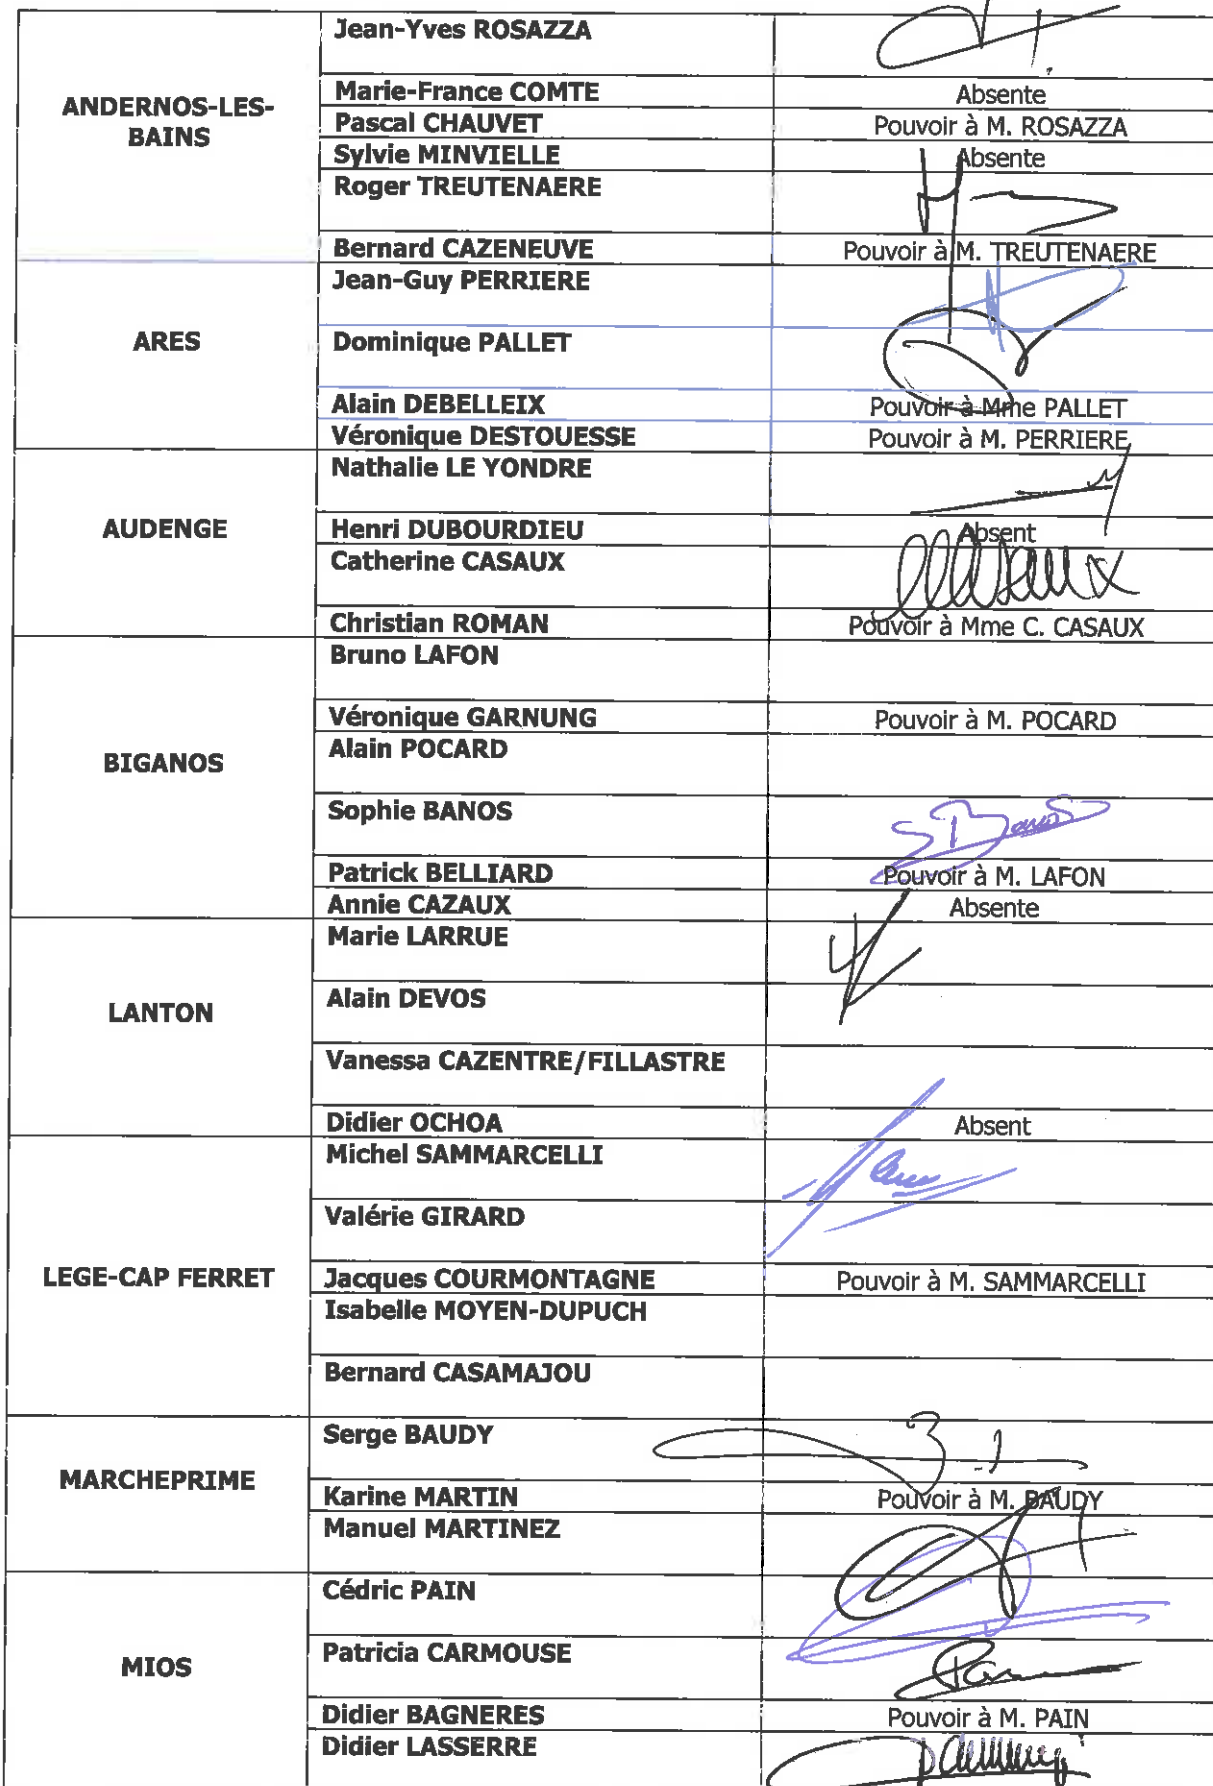 ANDERNOS-LES-
BAINS
Jean-Yves ROSAZZA
Marie-France COMTE Absente
Pascal CHAUVET Pouvoir à M. ROSAZZA
Sylvie MINVIELLE Absente
Roger TREUTENAERE
Bernard CAZENEUVE Pouvoir à M. TREUTENAERE
ARES
Jean-Guy PERRIERE
Dominique PALLET
Alain DEBELLEIX Pouvoir à Mme PALLET
Véronique DESTOUESSE Pouvoir à M. PERRIERE
AUDENGE
Nathalie LE YONDRE
Henri DUBOURDIEU Absent
Catherine CASAUX
Christian ROMAN Pouvoir à Mme C. CASAUX
BIGANOS
Bruno LAFON
Véronique GARNUNG Pouvoir à M. POCARD
Alain POCARD
Sophie BANOS
Patrick BELLIARD Pouvoir à M. LAFON
Annie CAZAUX Absente
LANTON
Marie LARRUE
Alain DEVOS
Vanessa CAZENTRE/FILLASTRE
Didier OCHOA Absent
LEGE-CAP FERRET
Michel SAMMARCELLI
Valérie GIRARD
Jacques COURMONTAGNE Pouvoir à M. SAMMARCELLI
Isabelle MOYEN-DUPUCH
Bernard CASAMAJOU
MARCHEPRIME
Serge BAUDY
Karine MARTIN Pouvoir à M. BAUDY
Manuel MARTINEZ
MIOS
Cédric PAIN
Patricia CARMOUSE
Didier BAGNERES Pouvoir à M. PAIN
Didier LASSERRE